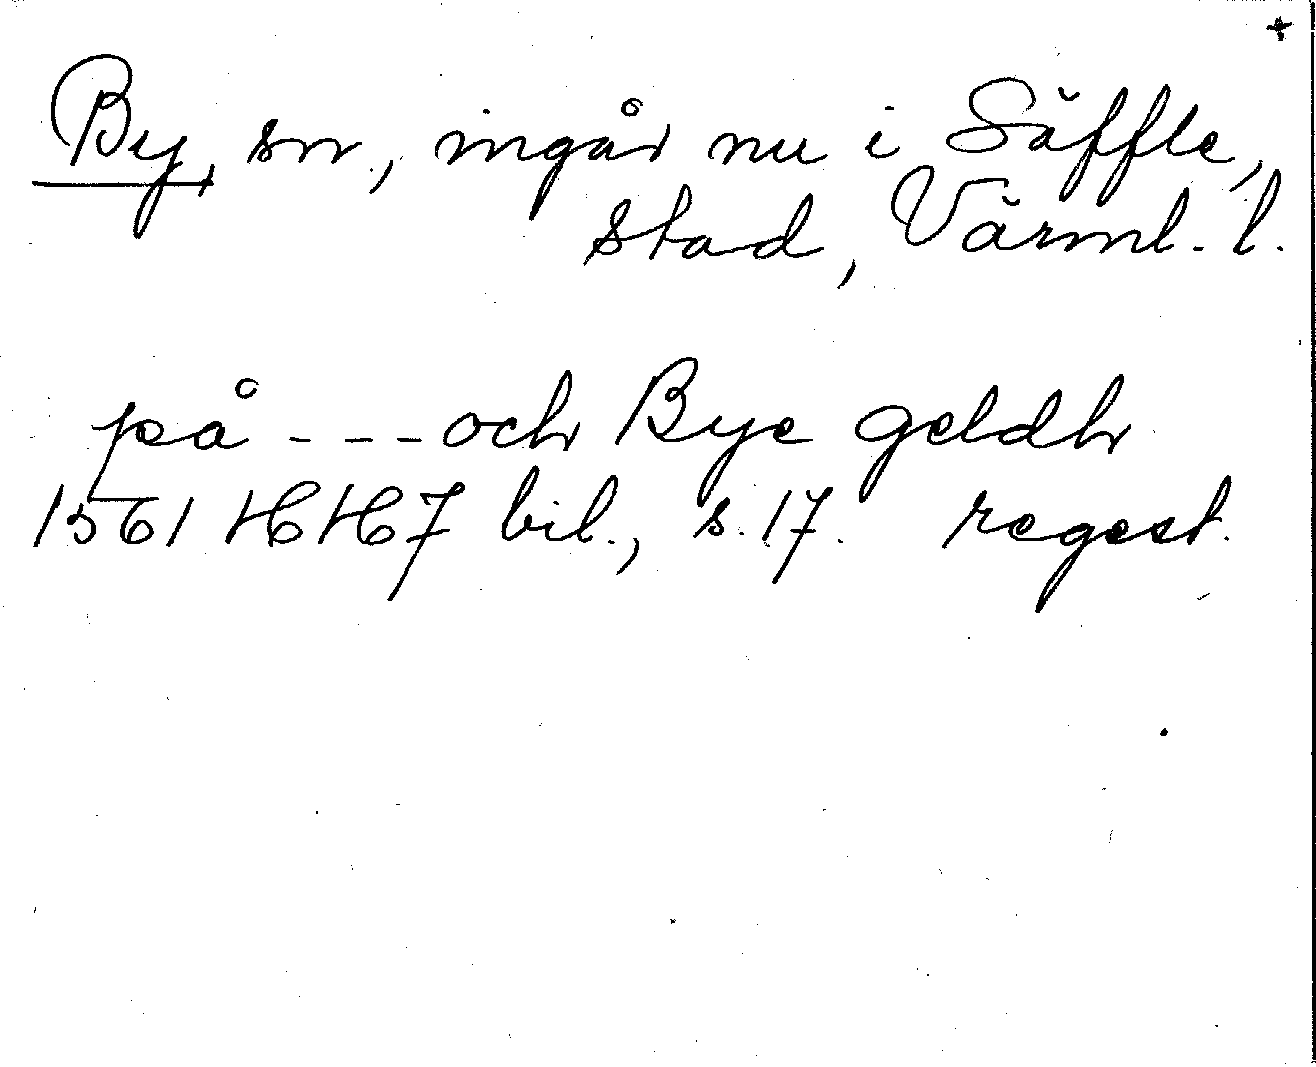 +
By, sn, ingår nu i Säffle,
stad, Värml. l.
på - - - och Bye geldh
1561 HH7 bil., s. 17. regest.